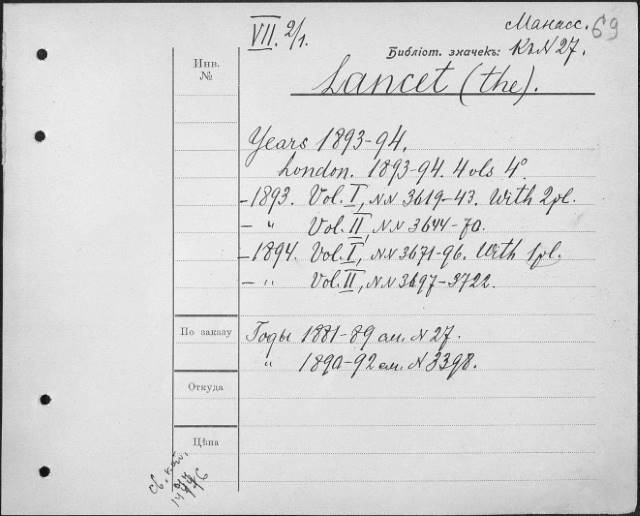 VII. 2/1.
Манасс. 69
Библіот. значекъ: КъN 27.
Инв.
№
Lancet (the).
Years 1893-94.
London. 1893-94. 4 vols 4°.
- 1893. Vol. I, NN 3619-43. With 2 pl.
- " Vol. II, NN 3644-70.
- 1894. Vol. I, NN 3671-96. With 1 pl.
- " Vol. II, NN 3697-3722.
По заказу
Годы 1881-89 см. N 27.
" 1890-92 см. N 3398.
Откуда
Цѣна
св. кат.